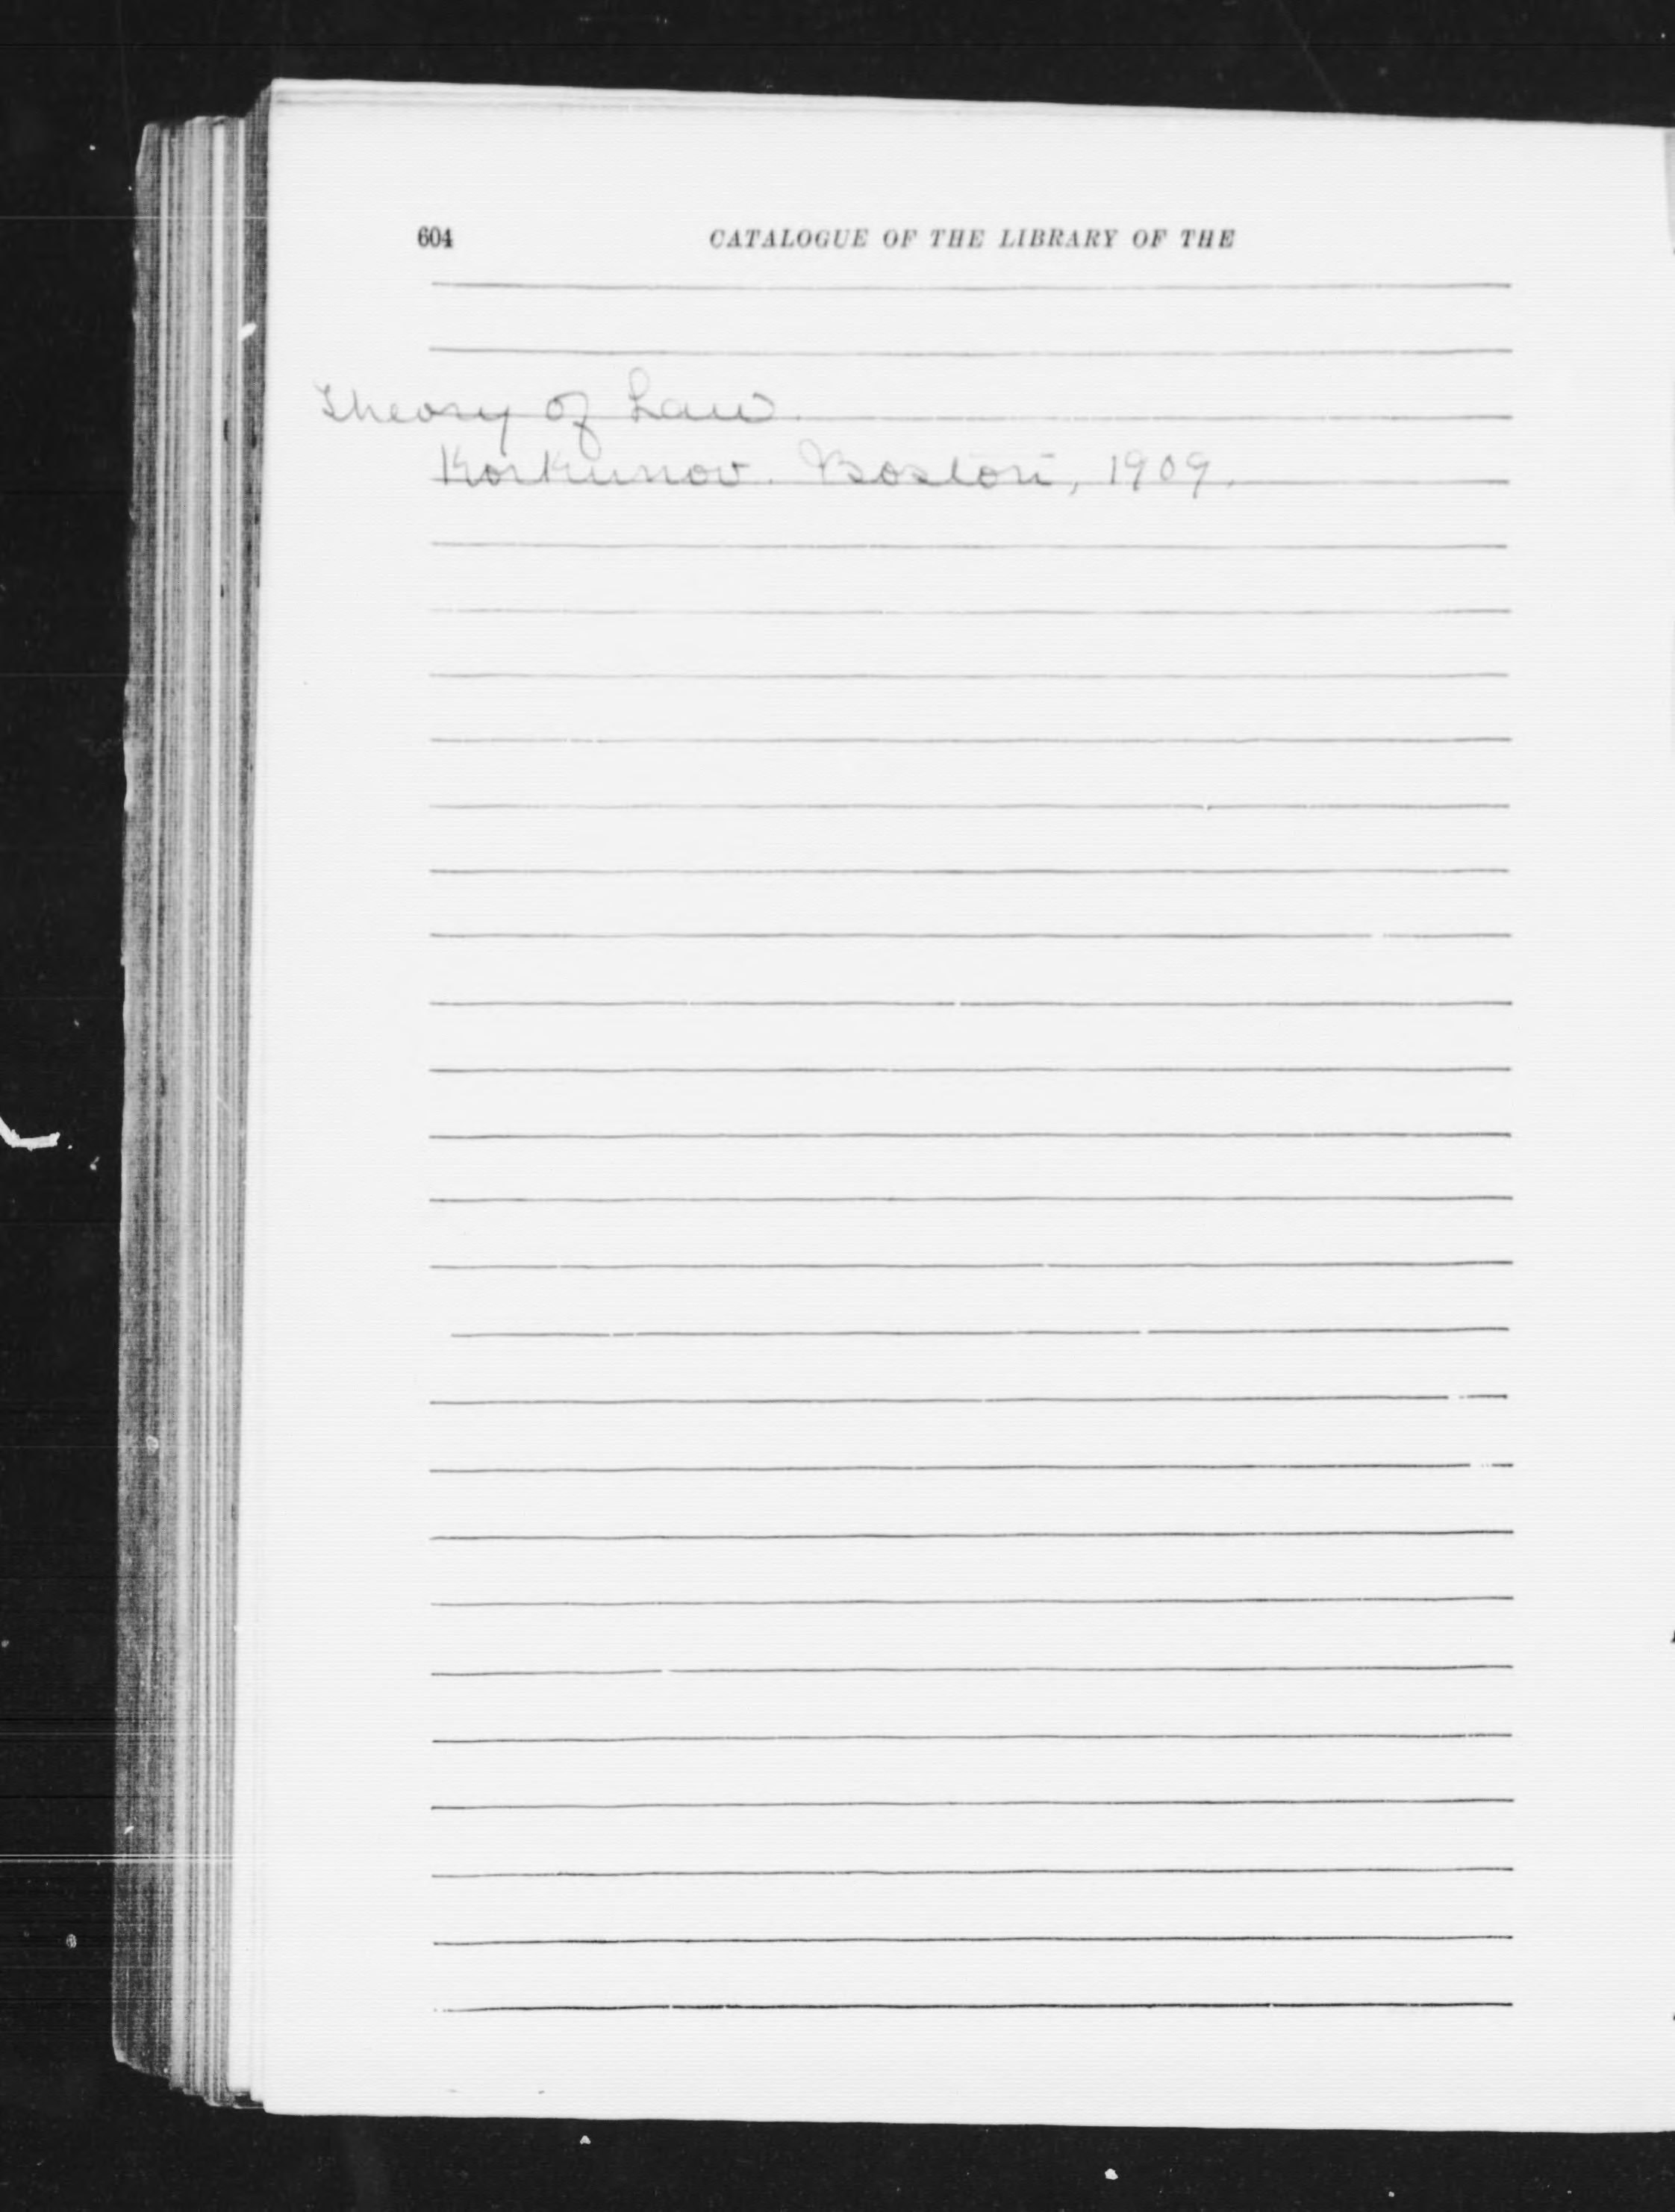 604 CATALOGUE OF THE LIBRARY OF THE
Theory of Law.
Korkunov. Boston, 1909.